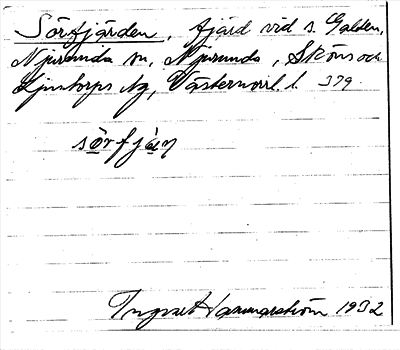 Sörfjärden, fjärd vid s. Galden,
Njurunda sn, Njurunda, Sköns och
Ljustorps tg, Västernorrl. l. 379.
sörfjän
Ingvar Hammarström 1932